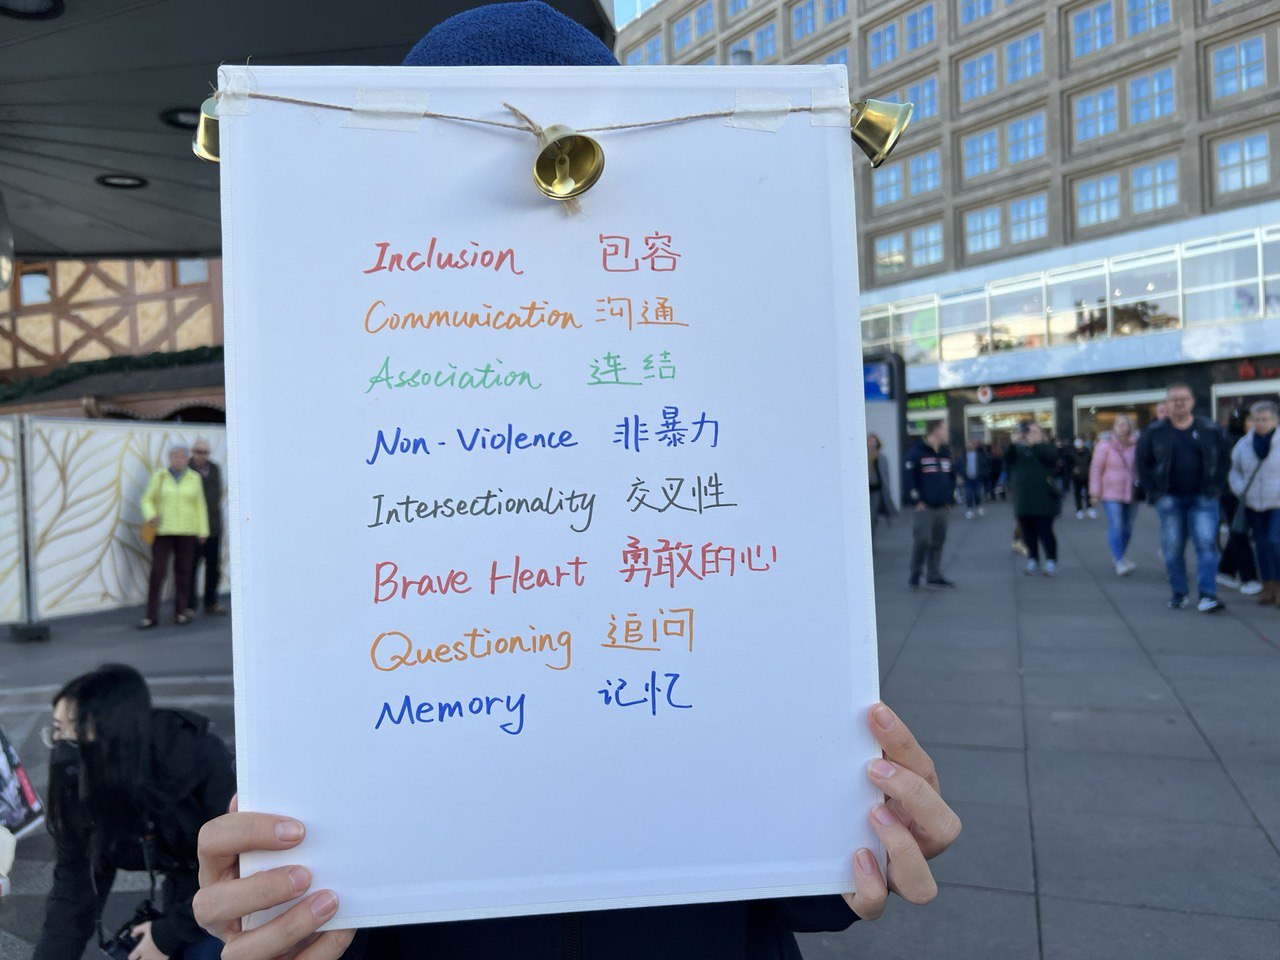 Inclusion 包容
Communication 沟通
Association 连结
Non-Violence 非暴力
Intersectionality 交叉性
Brave Heart 勇敢的心
Questioning 追问
Memory 记忆
vodafone